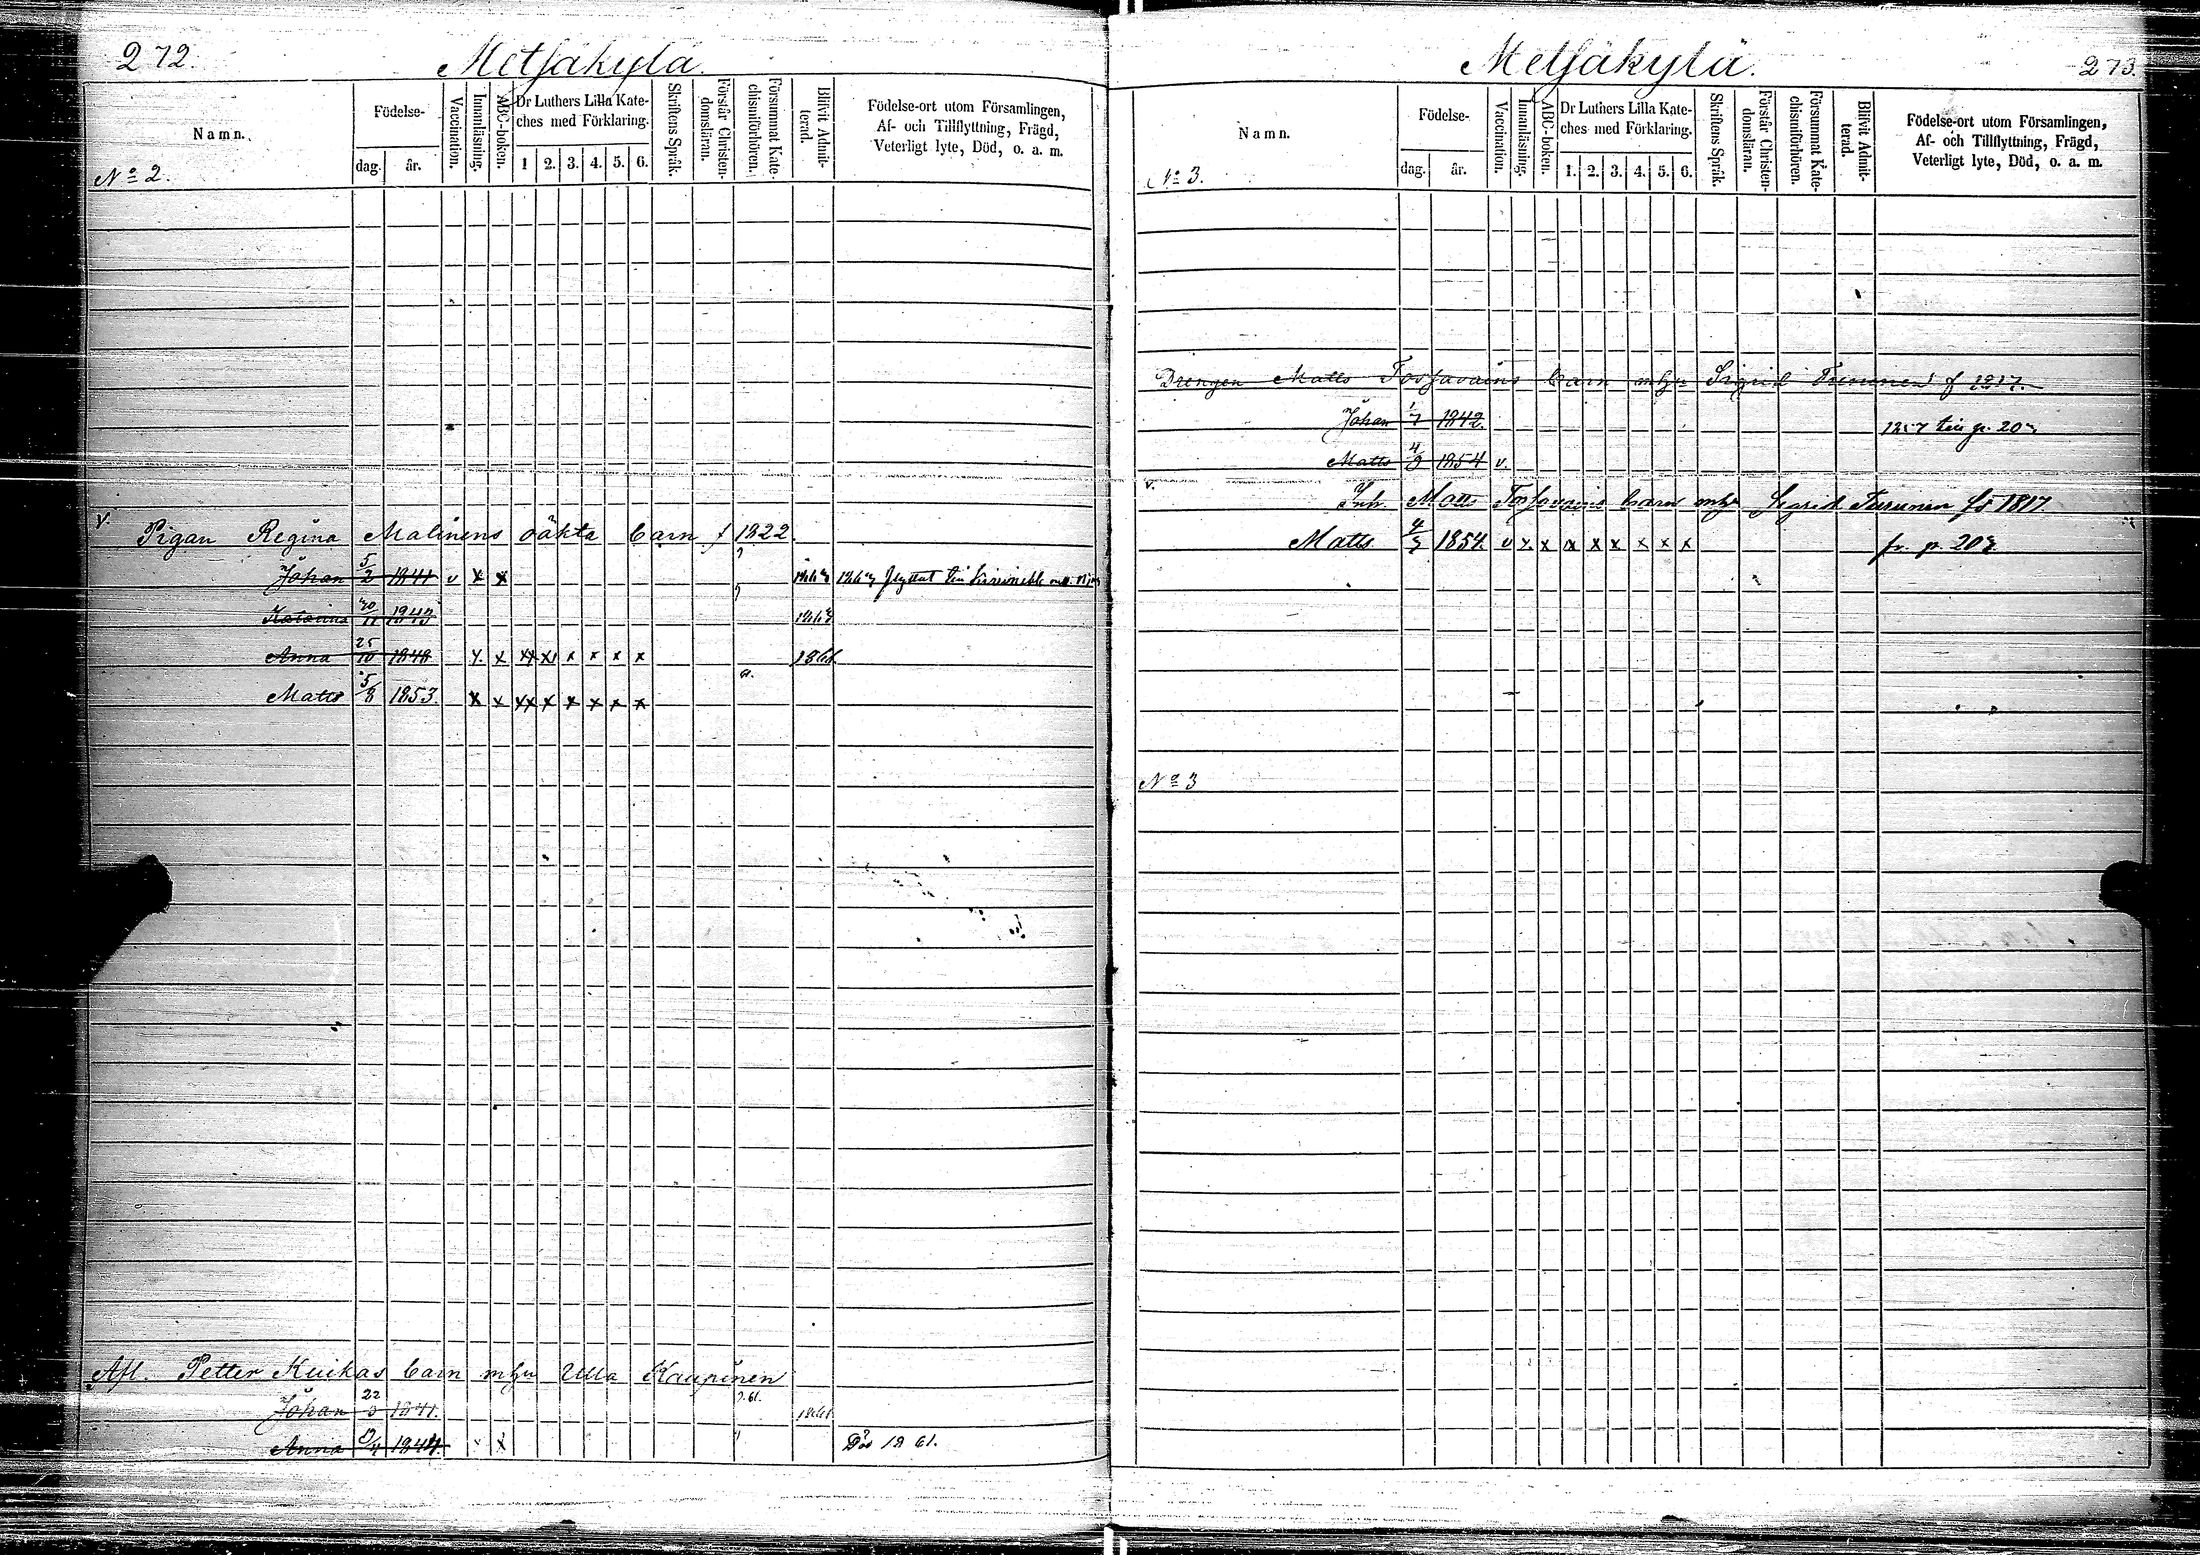 272. Metsäkylä.
Namn. Födelse- dag. år. Vaccination. Innanläsning. ABC-boken. Dr Luthers Lilla Kateches med Förklaring. 1 2. 3. 4. 5. 6. Skriftens Språk. Förstår Christendomsläran. Försummat Katechismiförhören. Blifvit Admitterad. Födelse-ort utom Församlingen, Af- och Tillflyttning, Frägd, Veterligt lyte, Död, o. a. m.
No 2.
v. Pigan Regina Malinens oäkta barn f 1822.
Johan 5/2 1841 v x x flyttat
Katarina 1843
Anna 25/10 1848 x x xx x x x x x 1868
Matts 5/8 1853. x x xx x x x x x
Afl. Petter Kuikas barn mhu Ulla Kaupinen
Johan 1841.
Anna 1844. x Död 1861.
Metsäkylä. 273.
Namn. Födelse- dag. år. Vaccination. Innanläsning. ABC-boken. Dr Luthers Lilla Kateches med Förklaring. 1. 2. 3. 4. 5. 6. Skriftens Språk. Förstår Christendomsläran. Försummat Katechismiförhören. Blifvit Admitterad. Födelse-ort utom Församlingen, Af- och Tillflyttning, Frägd, Veterligt lyte, Död, o. a. m.
No 3.
Drengen Matts Tossavains barn mhu Sigrid Turunen f 1817.
Johan 1/7 1842. 1857
Matts 1854 v.
v. Inh. Matts Tossavains barn mhu Sigrid Turunen fö 1817.
Matts 1854. v x x x x x x x x
No 3